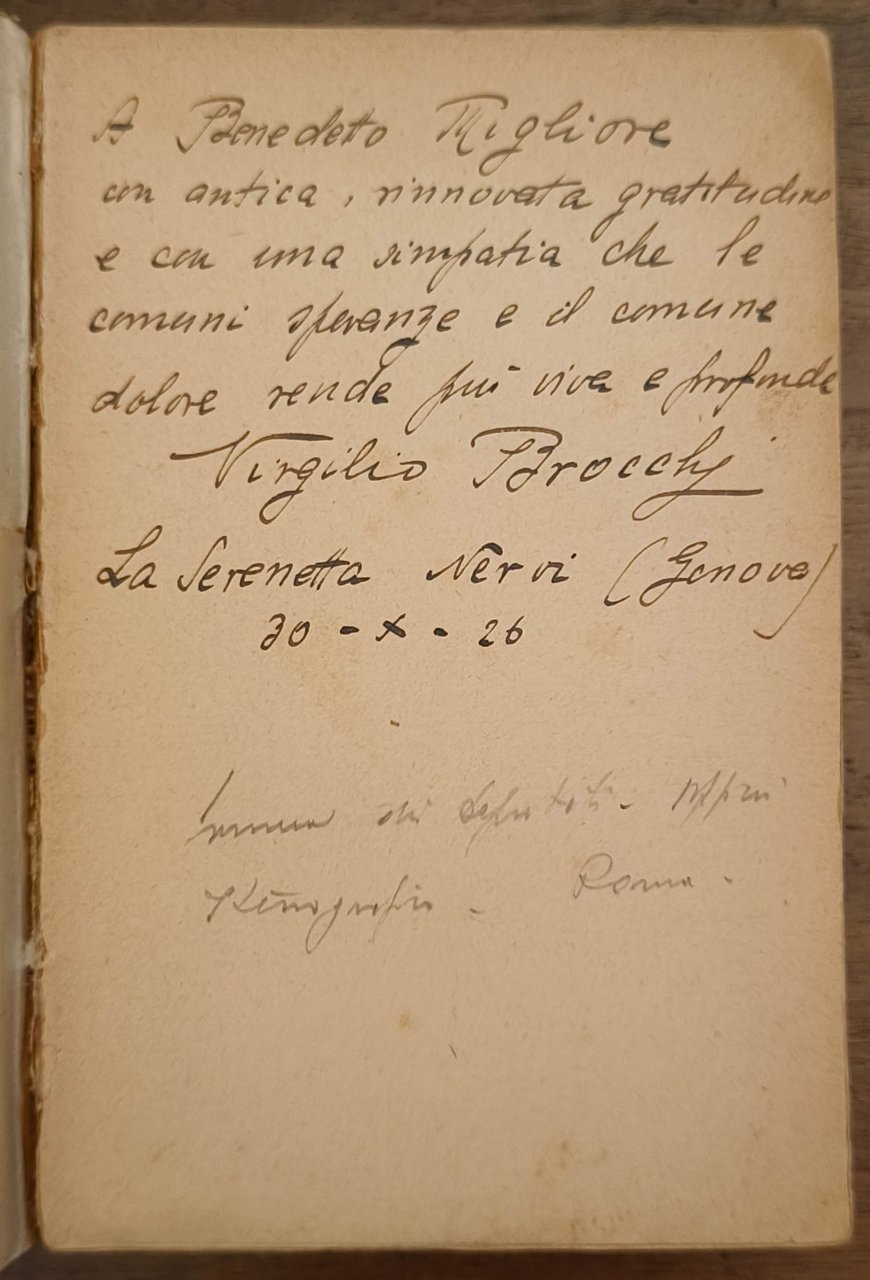 A Benedetto Migliore
con antica, rinnovata gratitudine
e con una simpatia che le
comuni speranze e il comune
dolore rende più viva e profonda
Virgilio Brocchi
La Serenetta Nervi (Genova)
30 - X - 26
Camera dei Deputati - Uffici
Stenografia - Roma -